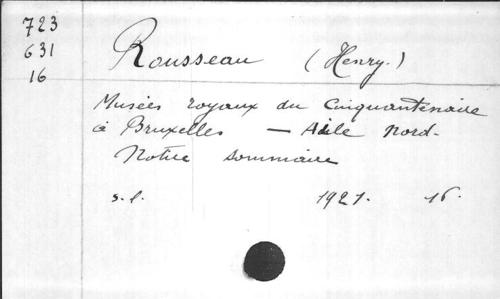 723
631
16
Rousseau (Henry.)
Musées royaux du Cinquantenaire
à Bruxelles — Aile Nord-
Notice sommaire
s.l. 1921. 16.